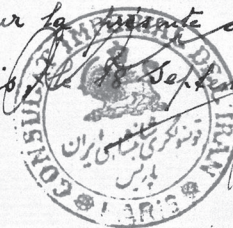 la présente
le 18 Sept
CONSULAT IMPERIAL DE L'IRAN
قونسولگری شاهنشاهی ایران
پاریس
PARIS